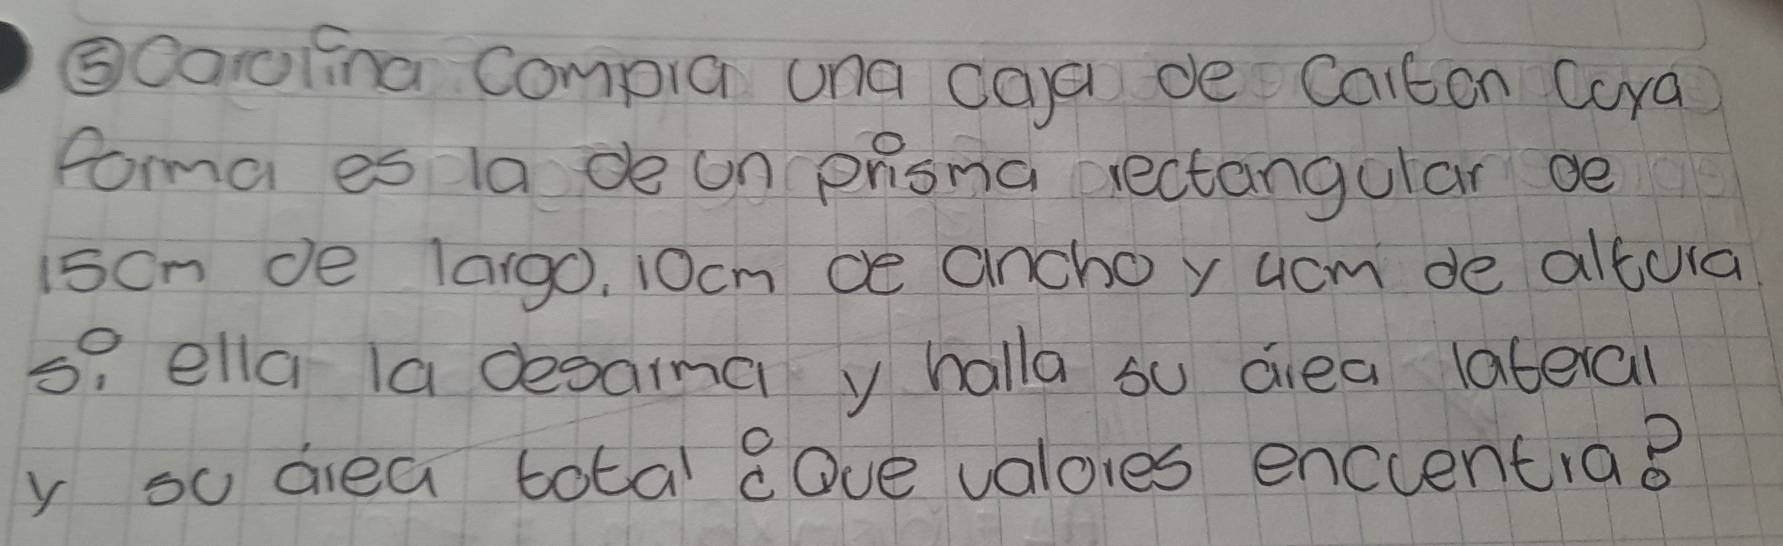 ⑤ Carolina compra una caja de Carton Cuya
forma es la de un prisma rectangular de
15cm de largo, 10cm de ancho y 4cm de altura
si ella la desarma y halla su área lateral
y su área total ¿Que valores encuentra?